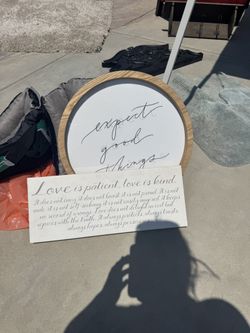 expect
good
things
Love is patient, love is kind.
It does not envy, it does not boast, it is not proud. It is not
rude, it is not self-seeking, it is not easily angered, it keeps
no record of wrongs. Love does not delight in evil but
rejoices with the truth. It always protects, always trusts,
always hopes, always perseveres.